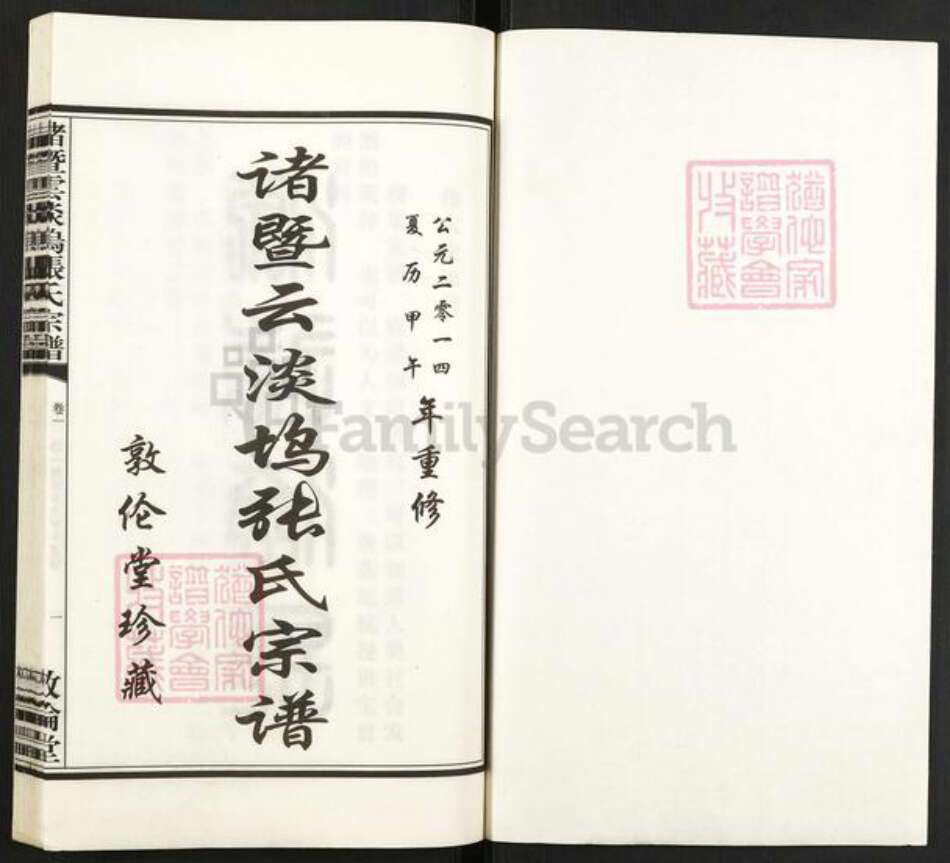 公元二零一四
夏历甲午
年重修
诸暨云淡坞张氏宗谱
敦伦堂珍藏
諸暨雲淡塢張氏宗譜
卷一
一
敦倫堂
猶他家譜學會收藏
猶他家譜學會收藏
FamilySearch